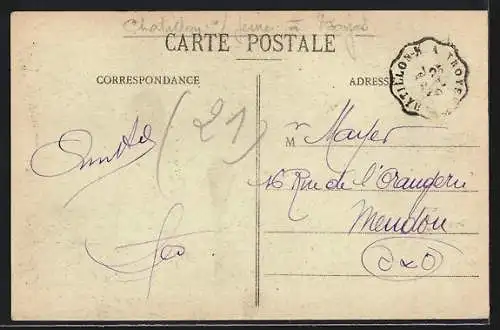 Chatillon s/ Seine à Troyes
CARTE POSTALE
CORRESPONDANCE
ADRESSE
CHATILLON-S. A TROYES
(21)
M Mayer
16 Rue de l'Orangerie
Meudon
S & O